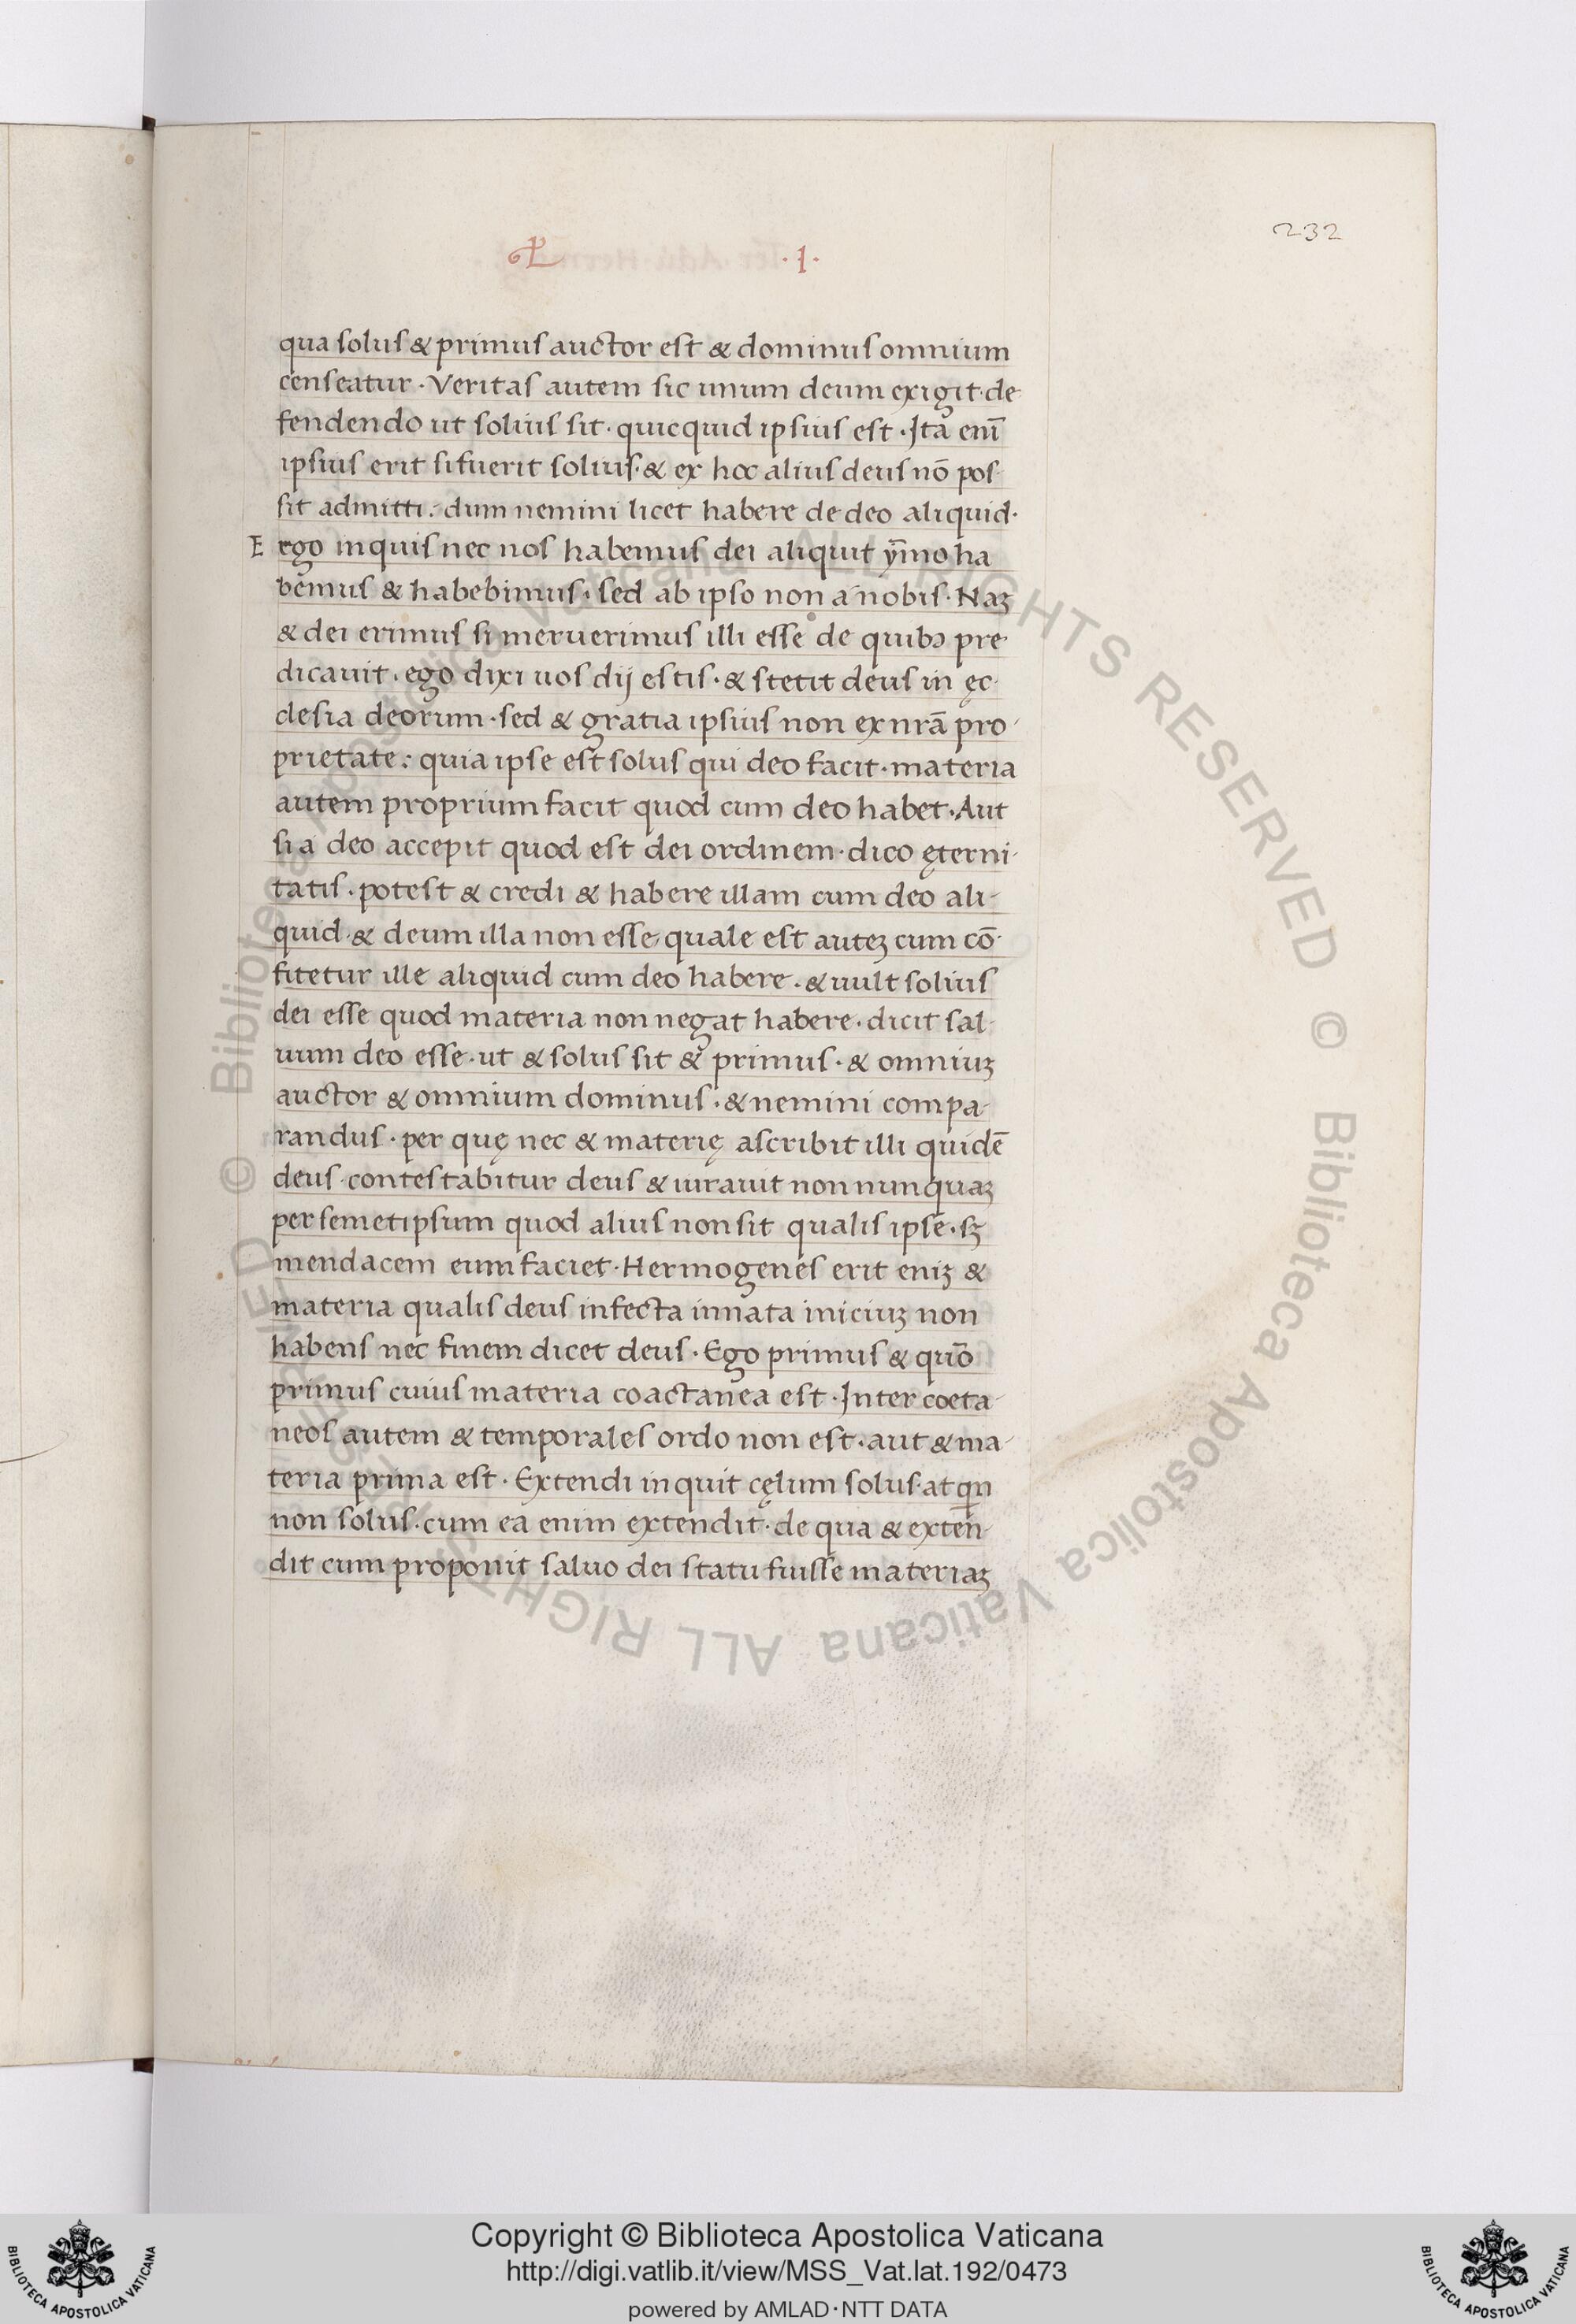 232
L · I ·
qua solus & primus auctor est & dominus omnium
censeatur · Veritas autem sic unum deum exigit · de
fendendo ut solius sit · quicquid ipsius est · Ita enī
ipsius erit si fuerit solius · & ex hoc alius deus nō pos-
sit admitti : dum nemini licet habere de deo aliquid ·
E ergo inquis nec nos habemus dei aliquit ȳmo ha
bemus & habebimus · sed ab ipso non a nobis · Naꝫ
& dei erimus si meruerimus illi esse de quibꝰ pre-
dicauit · ego dixi uos dij estis · & stetit deus in ęc-
clesia deorum · sed & gratia ipsius non ex nrā pro-
prietate : quia ipse est solus qui deo facit · materia
autem proprium facit quod cum deo habet · Aut
si a deo accepit quod est dei ordinem · dico ęterni-
tatis · potest & credi & habere illam cum deo ali-
quid · & deum illa non esse · quale est auteꝫ cum cō-
fitetur ille aliquid cum deo habere · & uult solius
dei esse quod materia non negat habere · dicit sal-
uum deo esse · ut & solus sit & primus · & omniuꝫ
auctor & omnium dominus · & nemini compa-
randus · per quę nec & materię ascribit illi quidē
deus contestabitur deus & iurauit non nunquaꝫ
per semetipsum quod alius non sit qualis ipse · sꝫ
mendacem eum faciet · Hermogenes erit eniꝫ &
materia qualis deus infecta innata iniciuꝫ non
habens nec finem dicet deus · Ego primus & quō
primus cuius materia coactanea est · Inter coeta-
neos autem & temporales ordo non est · aut & ma-
teria prima est · Extendi inquit cęlum solus · at qn
non solus · cum ea enim extendit · de qua & exten-
dit cum proponit saluo dei statu fuisse materiaꝫ
© Biblioteca Apostolica Vaticana ALL RIGHTS RESERVED © Biblioteca Apostolica Vaticana ALL RIGHTS RESERVED
Copyright © Biblioteca Apostolica Vaticana
http://digi.vatlib.it/view/MSS_Vat.lat.192/0473
powered by AMLAD · NTT DATA
BIBLIOTECA APOSTOLICA VATICANA
BIBLIOTECA APOSTOLICA VATICANA